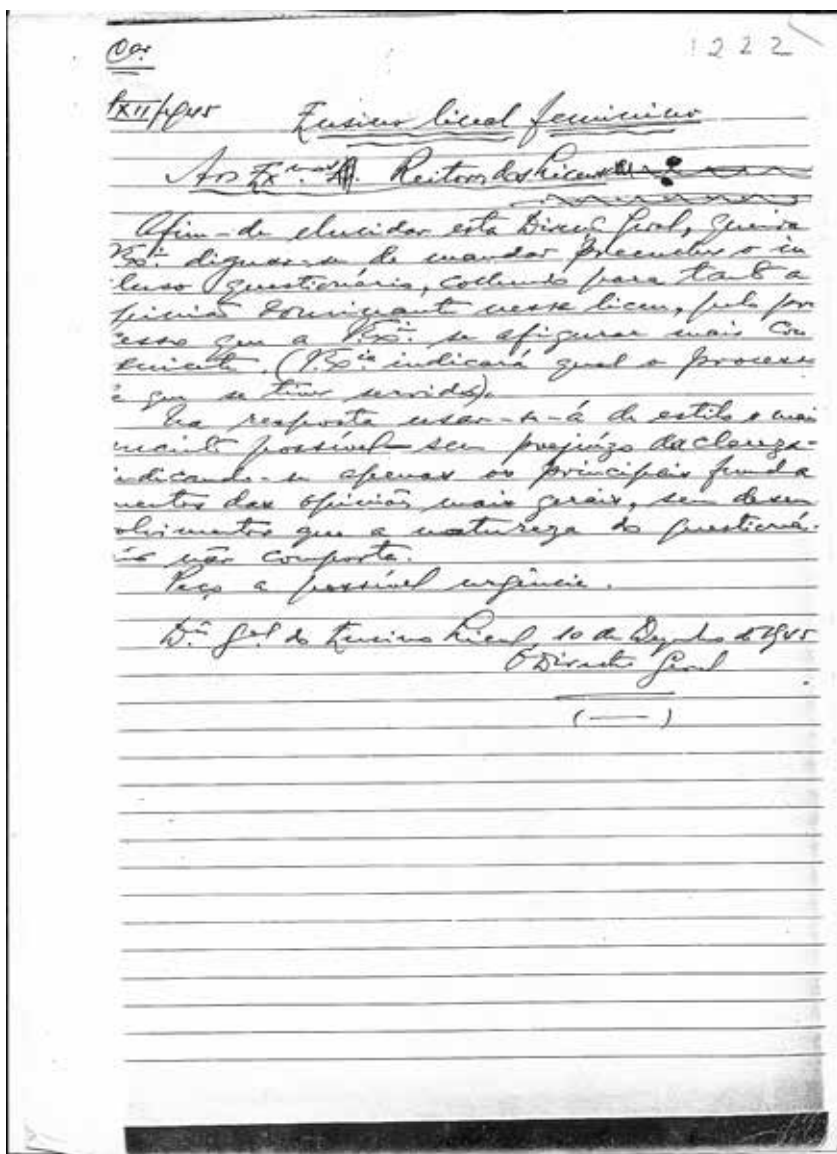 1222
XII/945
Ensino liceal feminino
Aos Ex.mos Reitores dos Liceus
Afim-de elucidar esta Direcç. Geral, queira
V.Ex.ª dignar-se de mandar preencher o in
cluso questionário, colhendo para tanto a
opinião dominante nesse liceu, pelo pro
cesso que a V.Ex.ia se afigurar mais con
veniente. (V.Ex.ia indicará qual o processo
de que se tiver servido).
Na resposta usar-se-á de estilo o mais
possível - sem prejuízo da clareza -
indicando-se apenas os principais funda
mentos das opiniões mais gerais, sem desen
volvimentos que a natureza do questioná-
rio não comporta.
Peço a possível urgência.
D.ão G.al do Ensino Liceal, 10 de Dezembro de 1945
O Director Geral
( — )